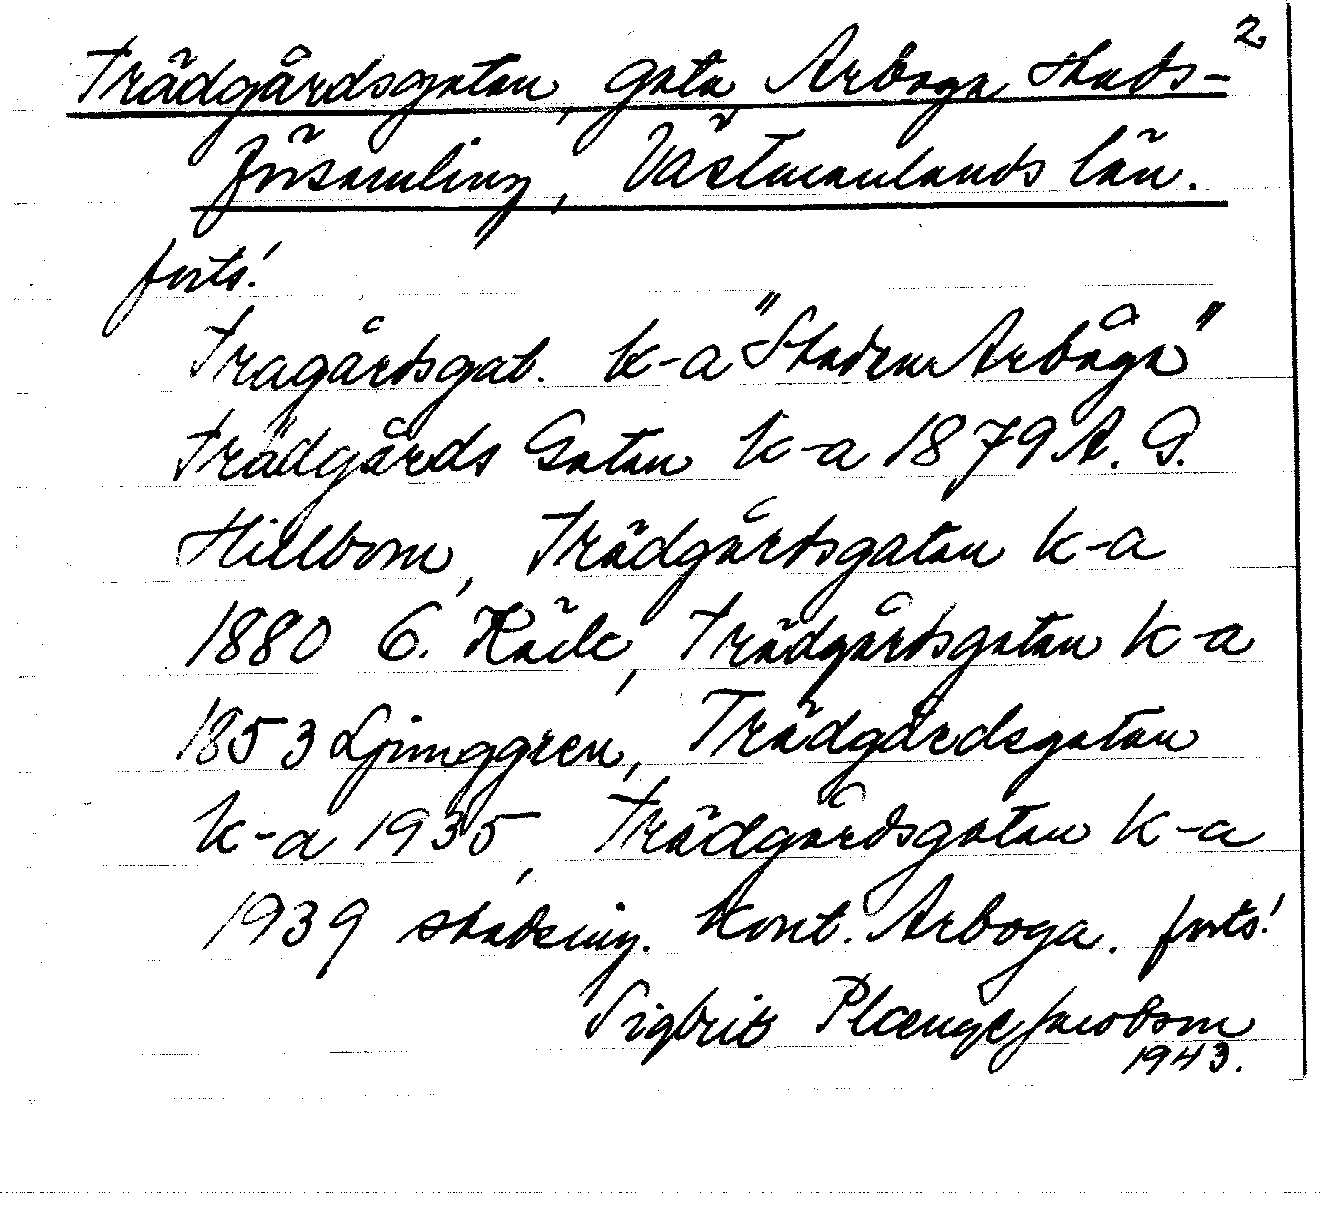 2
Trädgårdsgatan, gata, Arboga stads-
församling, Västmanlands län.
forts!
Tragårdsgat. K-a "Staden Arbåga"
Trädgårds Gatan K-a 1879 A. G.
Hillbom, Trädgårdsgatan K-a
1880 C. Käck, Trädgårdsgatan K-a
1853 Ljunggren, Trädgårdsgatan
K-a 1935, Trädgårdsgatan K-a
1939 stadsing. Kont. Arboga. forts!
Sigbrit Plænge Jacobson
1943.